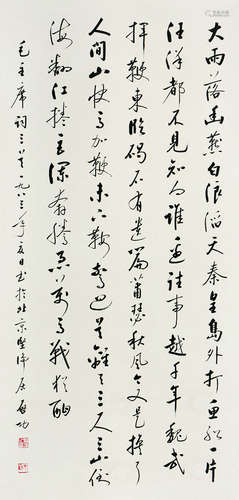 大雨落幽燕白浪滔天秦皇島外打魚船一片
汪洋都不見知向誰邊往事越千年魏武
揮鞭東臨碣石有遺篇蕭瑟秋風今又是換了
人間山快馬加鞭未下鞍驚回首離天三尺三山倒
海翻江捲巨瀾奔騰急萬馬戰猶酣
毛主席詞三首一九八三年夏日書於北京堅淨居啓功